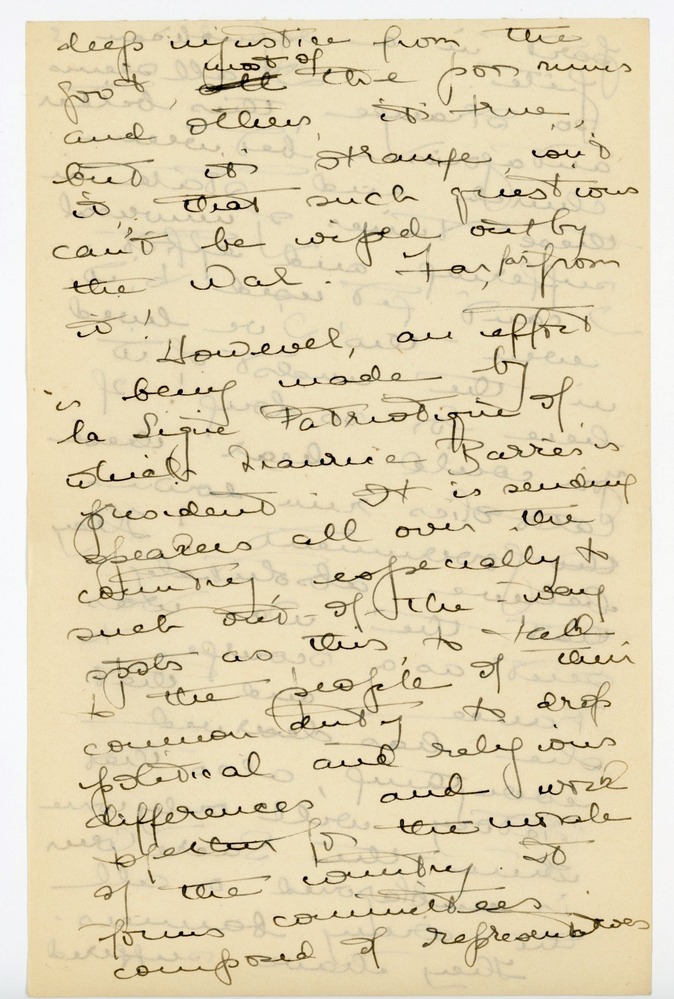 deep injustice from the
Gov't, all most of the poor nuns
and others, it's true,
but it's strange, isn't
it, that such questions
can't be wiped out by
the War. Far, far from
it!
However, an effort
is being made by
la Ligue Patriotique of
which Maurice Barrès is
president. It is sending
speakers all over the
country, especially to
such out-of-the-way
spots as this, to talk
to the people of their
common duty to drop
political and religious
differences and work
together for the morale
of the country. It
forms committees
composed of representatives